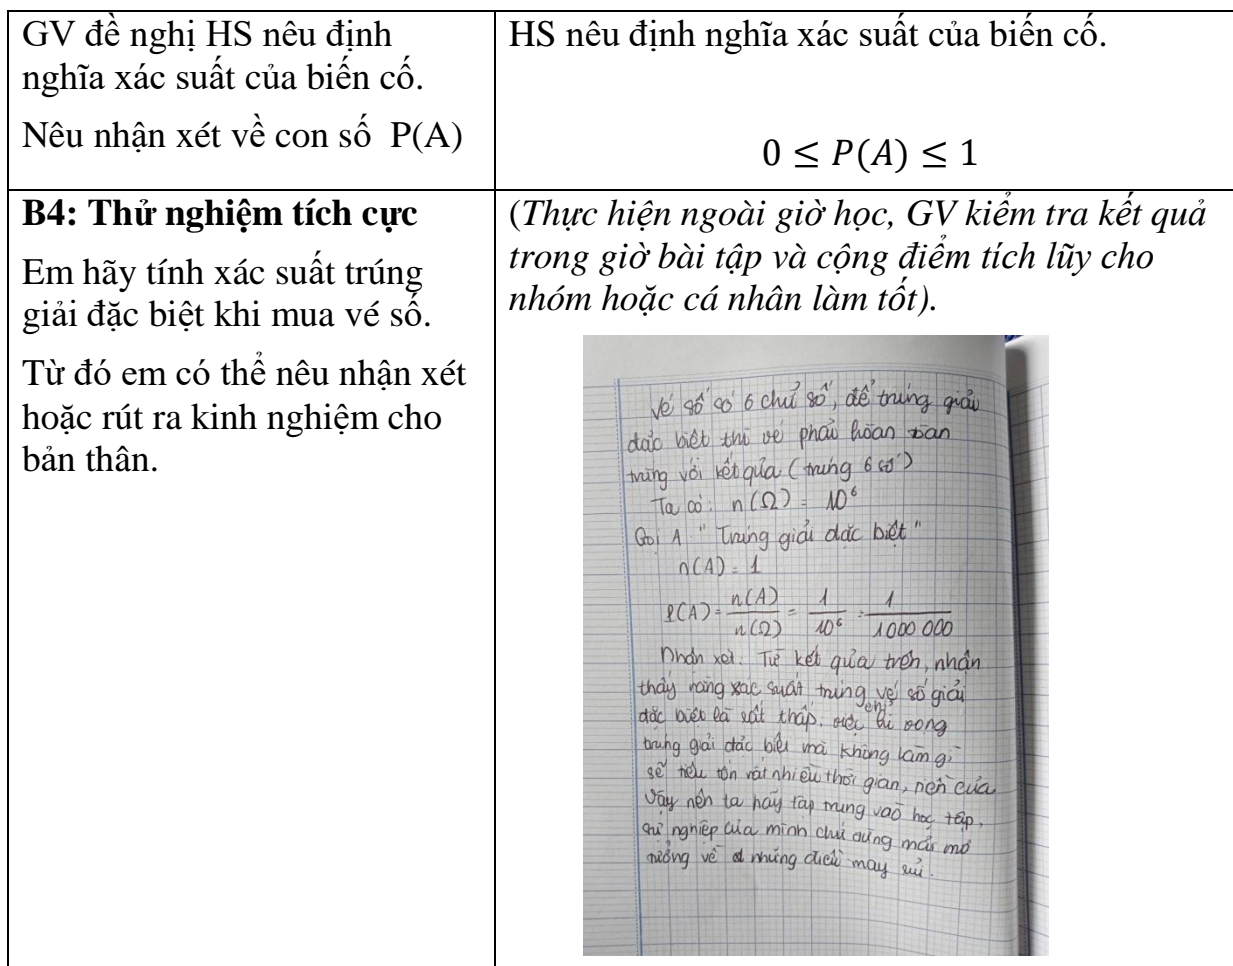 GV đề nghị HS nêu định
nghĩa xác suất của biến cố.
Nêu nhận xét về con số P(A)
HS nêu định nghĩa xác suất của biến cố.
0 ≤ P(A) ≤ 1
B4: Thử nghiệm tích cực
Em hãy tính xác suất trúng
giải đặc biệt khi mua vé số.
Từ đó em có thể nêu nhận xét
hoặc rút ra kinh nghiệm cho
bản thân.
(Thực hiện ngoài giờ học, GV kiểm tra kết quả
trong giờ bài tập và cộng điểm tích lũy cho
nhóm hoặc cá nhân làm tốt).
Vé số có 6 chữ số, để trúng giải
đặc biệt thì vé phải hoàn toàn
trùng với kết qủa (trúng 6 số)
Ta có: n(Ω) = 10⁶
Gọi A "Trúng giải đặc biệt"
n(A) = 1
P(A) = n(A)/n(Ω) = 1/10⁶ = 1/1000 000
Nhận xét: Từ kết qủa trên, nhận
thấy rằng xác suất trúng vé số giải
đặc biệt là rất thấp. việc chỉ vọng
trúng giải đặc biệt mà không làm gì
sẽ tiêu tốn rất nhiều thời gian, tiền của
Vậy nên ta hãy tập trung vào học tập,
sự nghiệp của mình chứ đừng mãi mơ
tưởng về những điều may rủi.